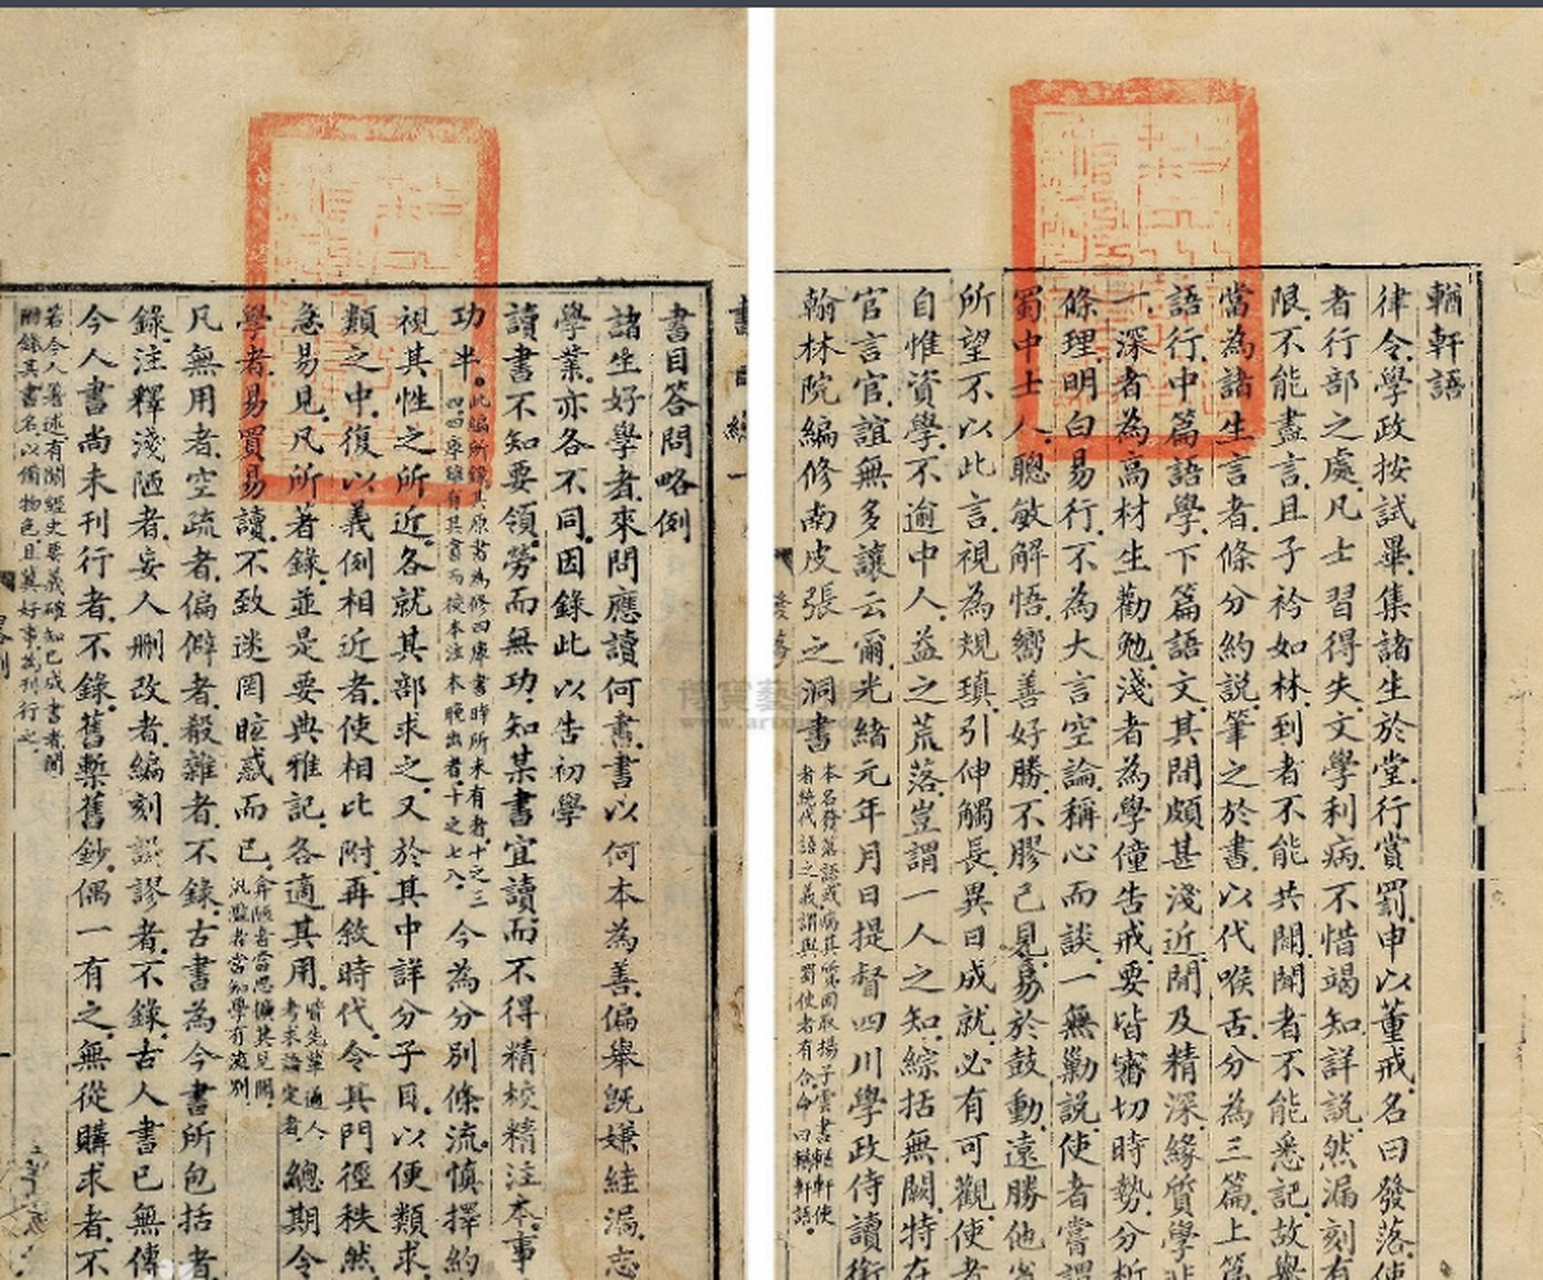 輶軒語
律令學政按試畢集諸生於堂行賞罰申以董戒名曰發落使
者行部之處凡士習得失文學利病不惜竭知詳說然漏刻有
限不能盡言且子衿如林到者不能共聞聞者不能悉記故舉
當為諸生言者條分約說筆之於書以代喉舌分為三篇上篇
語行中篇語學下篇語文其間頗甚淺近間及精深緣質學非
一深者為高材生勸勉淺者為學僮告戒要皆審切時勢分析
條理明白易行不為大言空論稱心而談一無勦說使者嘗謂
蜀中士人聰敏解悟嚮善好勝不膠己見易於鼓動遠勝他省
所望不以此言視為規瑱引伸觸長異日成就必有可觀使者
自惟資學不逾中人益之荒落豈謂一人之知綜括無闕特在
官言官誼無多讓云爾光緒元年月日提督四川學政侍讀銜
翰林院編修南皮張之洞書
本名發落語或病其質因取揚子雲書輶軒使
者絕代語之義謂與蜀使者有合命曰輶軒語
書目答問略例
諸生好學者來問應讀何書書以何本為善偏舉既嫌絓漏志
學業亦各不同因錄此以告初學
讀書不知要領勞而無功知某書宜讀而不得精校精注本事
功半
此編所錄其原書為修四庫書時所未有者十之三
四四庫雖有其書而校本注本晚出者十之七八
今為分別條流慎擇約
視其性之所近各就其部求之又於其中詳分子目以便類求
類之中復以義例相近者使相比附再敘時代令其門徑秩然
急易見凡所著錄並是要典雅記各適其用
皆先輩通人
考求論定者
總期令
學者易買易讀不致迷罔眩惑而已
弇陋者當思擴其見聞
汎濫者當知學有流別
凡無用者空疏者偏僻者殽雜者不錄古書為今書所包括者
錄注釋淺陋者妄人刪改者編刻譌謬者不錄古人書已無傳
今人書尚未刊行者不錄舊槧舊鈔偶一有之無從購求者不
若今人著述有關經史要義確知已成書者間
附錄其書名以備物色且冀好事為刊行之